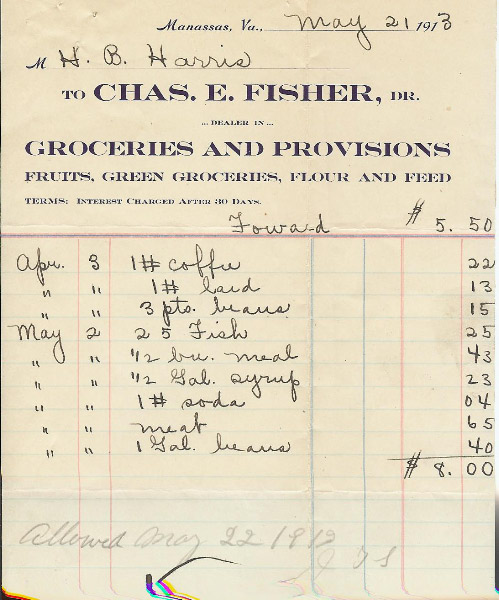 Manassas, Va., May 21 1913
M H. B. Harris
TO CHAS. E. FISHER, DR.
... DEALER IN ...
GROCERIES AND PROVISIONS
FRUITS, GREEN GROCERIES, FLOUR AND FEED
TERMS: INTEREST CHARGED AFTER 30 DAYS.
Foward $ 5. 50
Apr. 3 1# coffee 22
" " 1# lard 13
" " 3 pts. beans 15
May 2 25 Fish 25
" " 1/2 bu. meal 43
" " 1/2 Gal. syrup 23
" " 1# soda 04
" " meat 65
" " 1 Gal. beans 40
$ 8. 00
Allowed May 22 1913